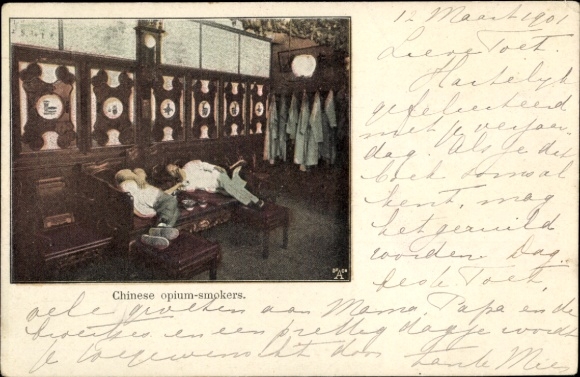 12 Maart 1901
Lieve Toet.
Hartelijk
gefeliciteerd
met je verjaar
dag. Als je dit
boek soms al
kent, mag
het geruild
worden. Dag
beste Toet,
Chinese opium-smokers.
vele groeten aan Mama, Papa en de
broertjes en een prettig dagje wordt
je toegewenscht door Tante Mies